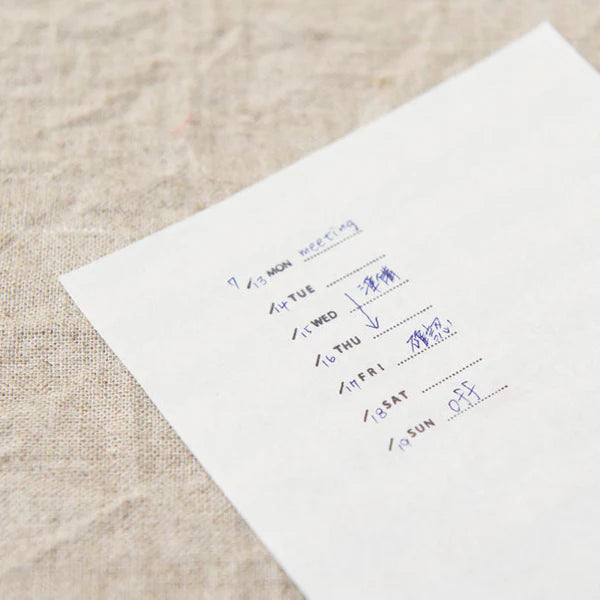 7/13 MON meeting
/14 TUE
/15 WED 準備
/16 THU
/17 FRI 確認
/18 SAT
/19 SUN Off